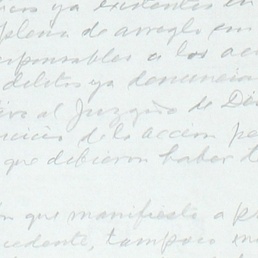 ya existentes en
plena de arreglo con
responsables a los
delitos ya denuncia
al Juzgado de
de la accion pe
que debieron haber t
que manifiesta a p
cedente, tampoco